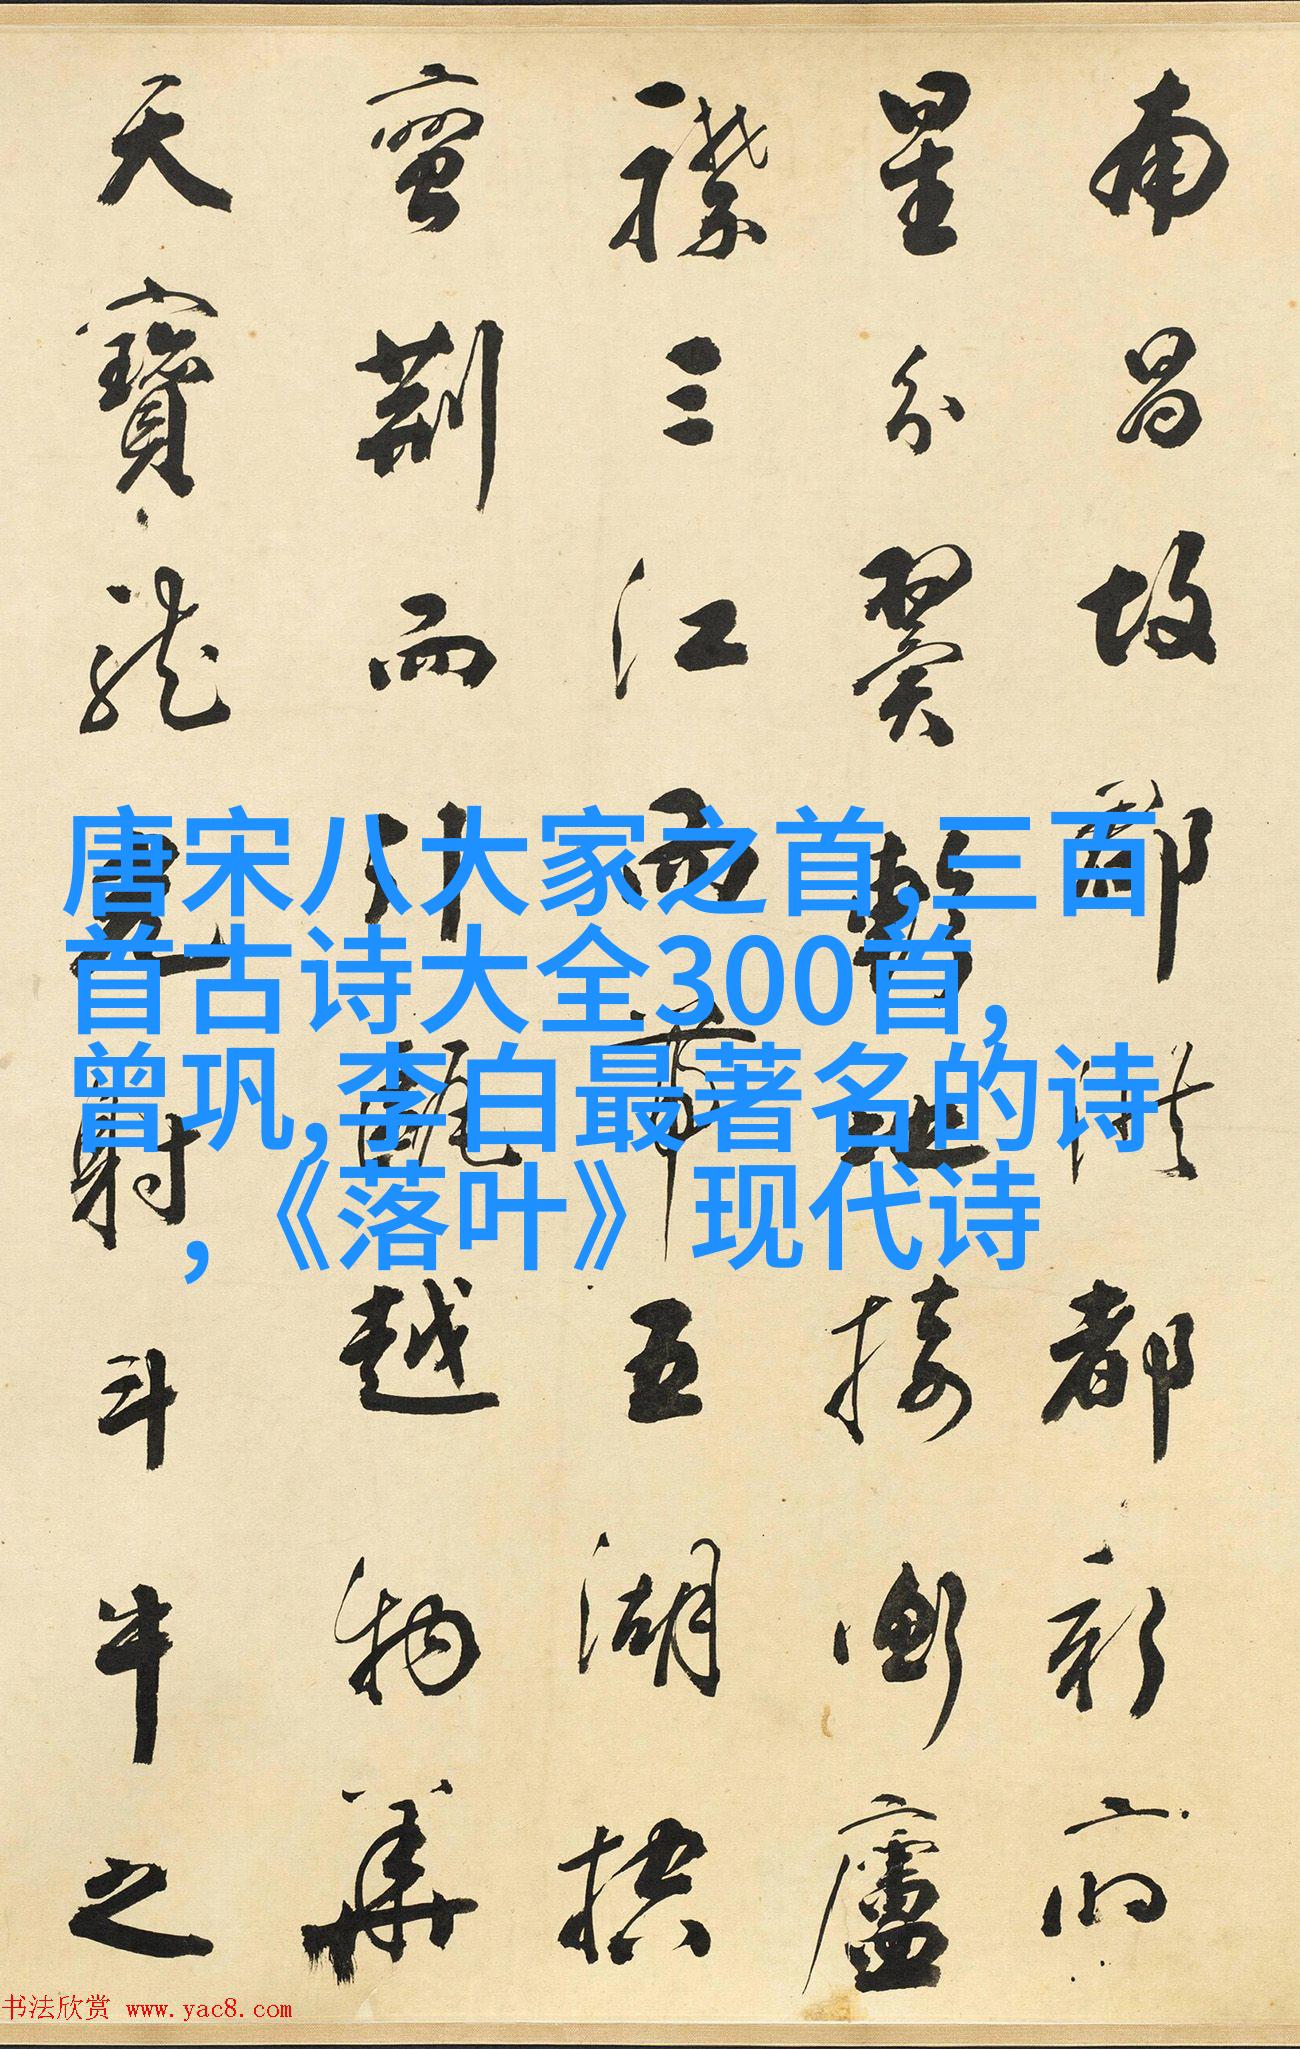 南昌故郡洪都新府
星分翼軫地接衡廬
襟三江而帶五湖控
蠻荆而引甌越物華
天寶龍光射斗牛之
唐宋八大家之首,三百
首古诗大全300首,
曾巩,李白最著名的诗
,《落叶》现代诗
书法欣赏 www.yac8.com